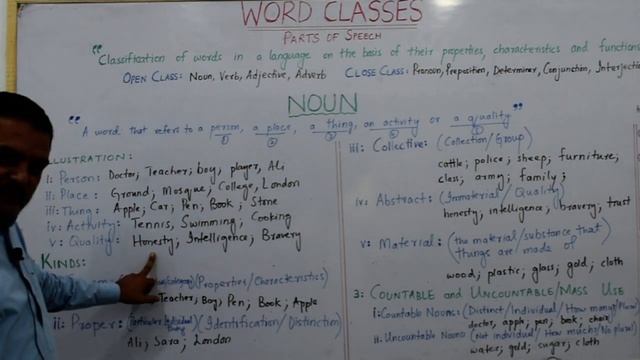 WORD CLASSES
PARTS OF SPEECH
"Classification of words in a language on the basis of their properties, characteristics and functions
OPEN CLASS: Noun, Verb, Adjective, Adverb CLOSE CLASS: Pronoun, Preposition, Determiner, Conjunction, Interjection
NOUN
"A word that refers to a person, a place, a thing, an activity or a quality"
① ② ③ ④ ⑤
ILLUSTRATION:
i: Person: Doctor; Teacher; boy, player, Ali
ii: Place: Ground; Mosque; College, London
iii: Thing: Apple; Car; Pen, Book; Stone
iv: Activity: Tennis, Swimming; Cooking
v: Quality: Honesty; Intelligence; Bravery
KINDS:
(Properties/Characteristics)
Teacher; Boy, Pen; Book; Apple
ii: Proper: (Identification/Distinction)
Ali; Sara; London
iii: Collective: (Collection/Group)
cattle; police; sheep, furniture;
class; army; family;
iv: Abstract: (Immaterial/Quality)
honesty, intelligence, bravery, trust
v: Material: (the material/substance that
things are made of
wood; plastic; glass; gold; cloth
3: COUNTABLE AND UNCOUNTABLE/MASS USE
i: Countable Nouns: (Distinct/Individual/How many/Plural)
doctor, apple; pen; book; chair
ii: Uncountable Nouns: (Not individual/How much/No plural)
water; gold; sugar; cloth